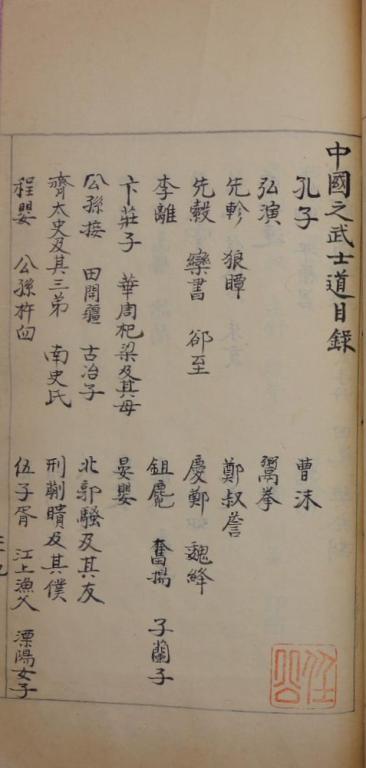 中國之武士道目錄
孔子 曹沫
弘演 鬻拳
先軫 狼瞫 鄭叔詹
先縠 欒書 郤至 慶鄭 魏絳
李離 鉏麑 奮揚 子蘭子
卞莊子 華周杞梁及其母 晏嬰
公孫接 田開疆 古冶子 北郭騷及其友
齊太史及其三弟 南史氏 刑蒯聵及其僕
程嬰 公孫杵臼 伍子胥 江上漁父 溧陽女子
任公